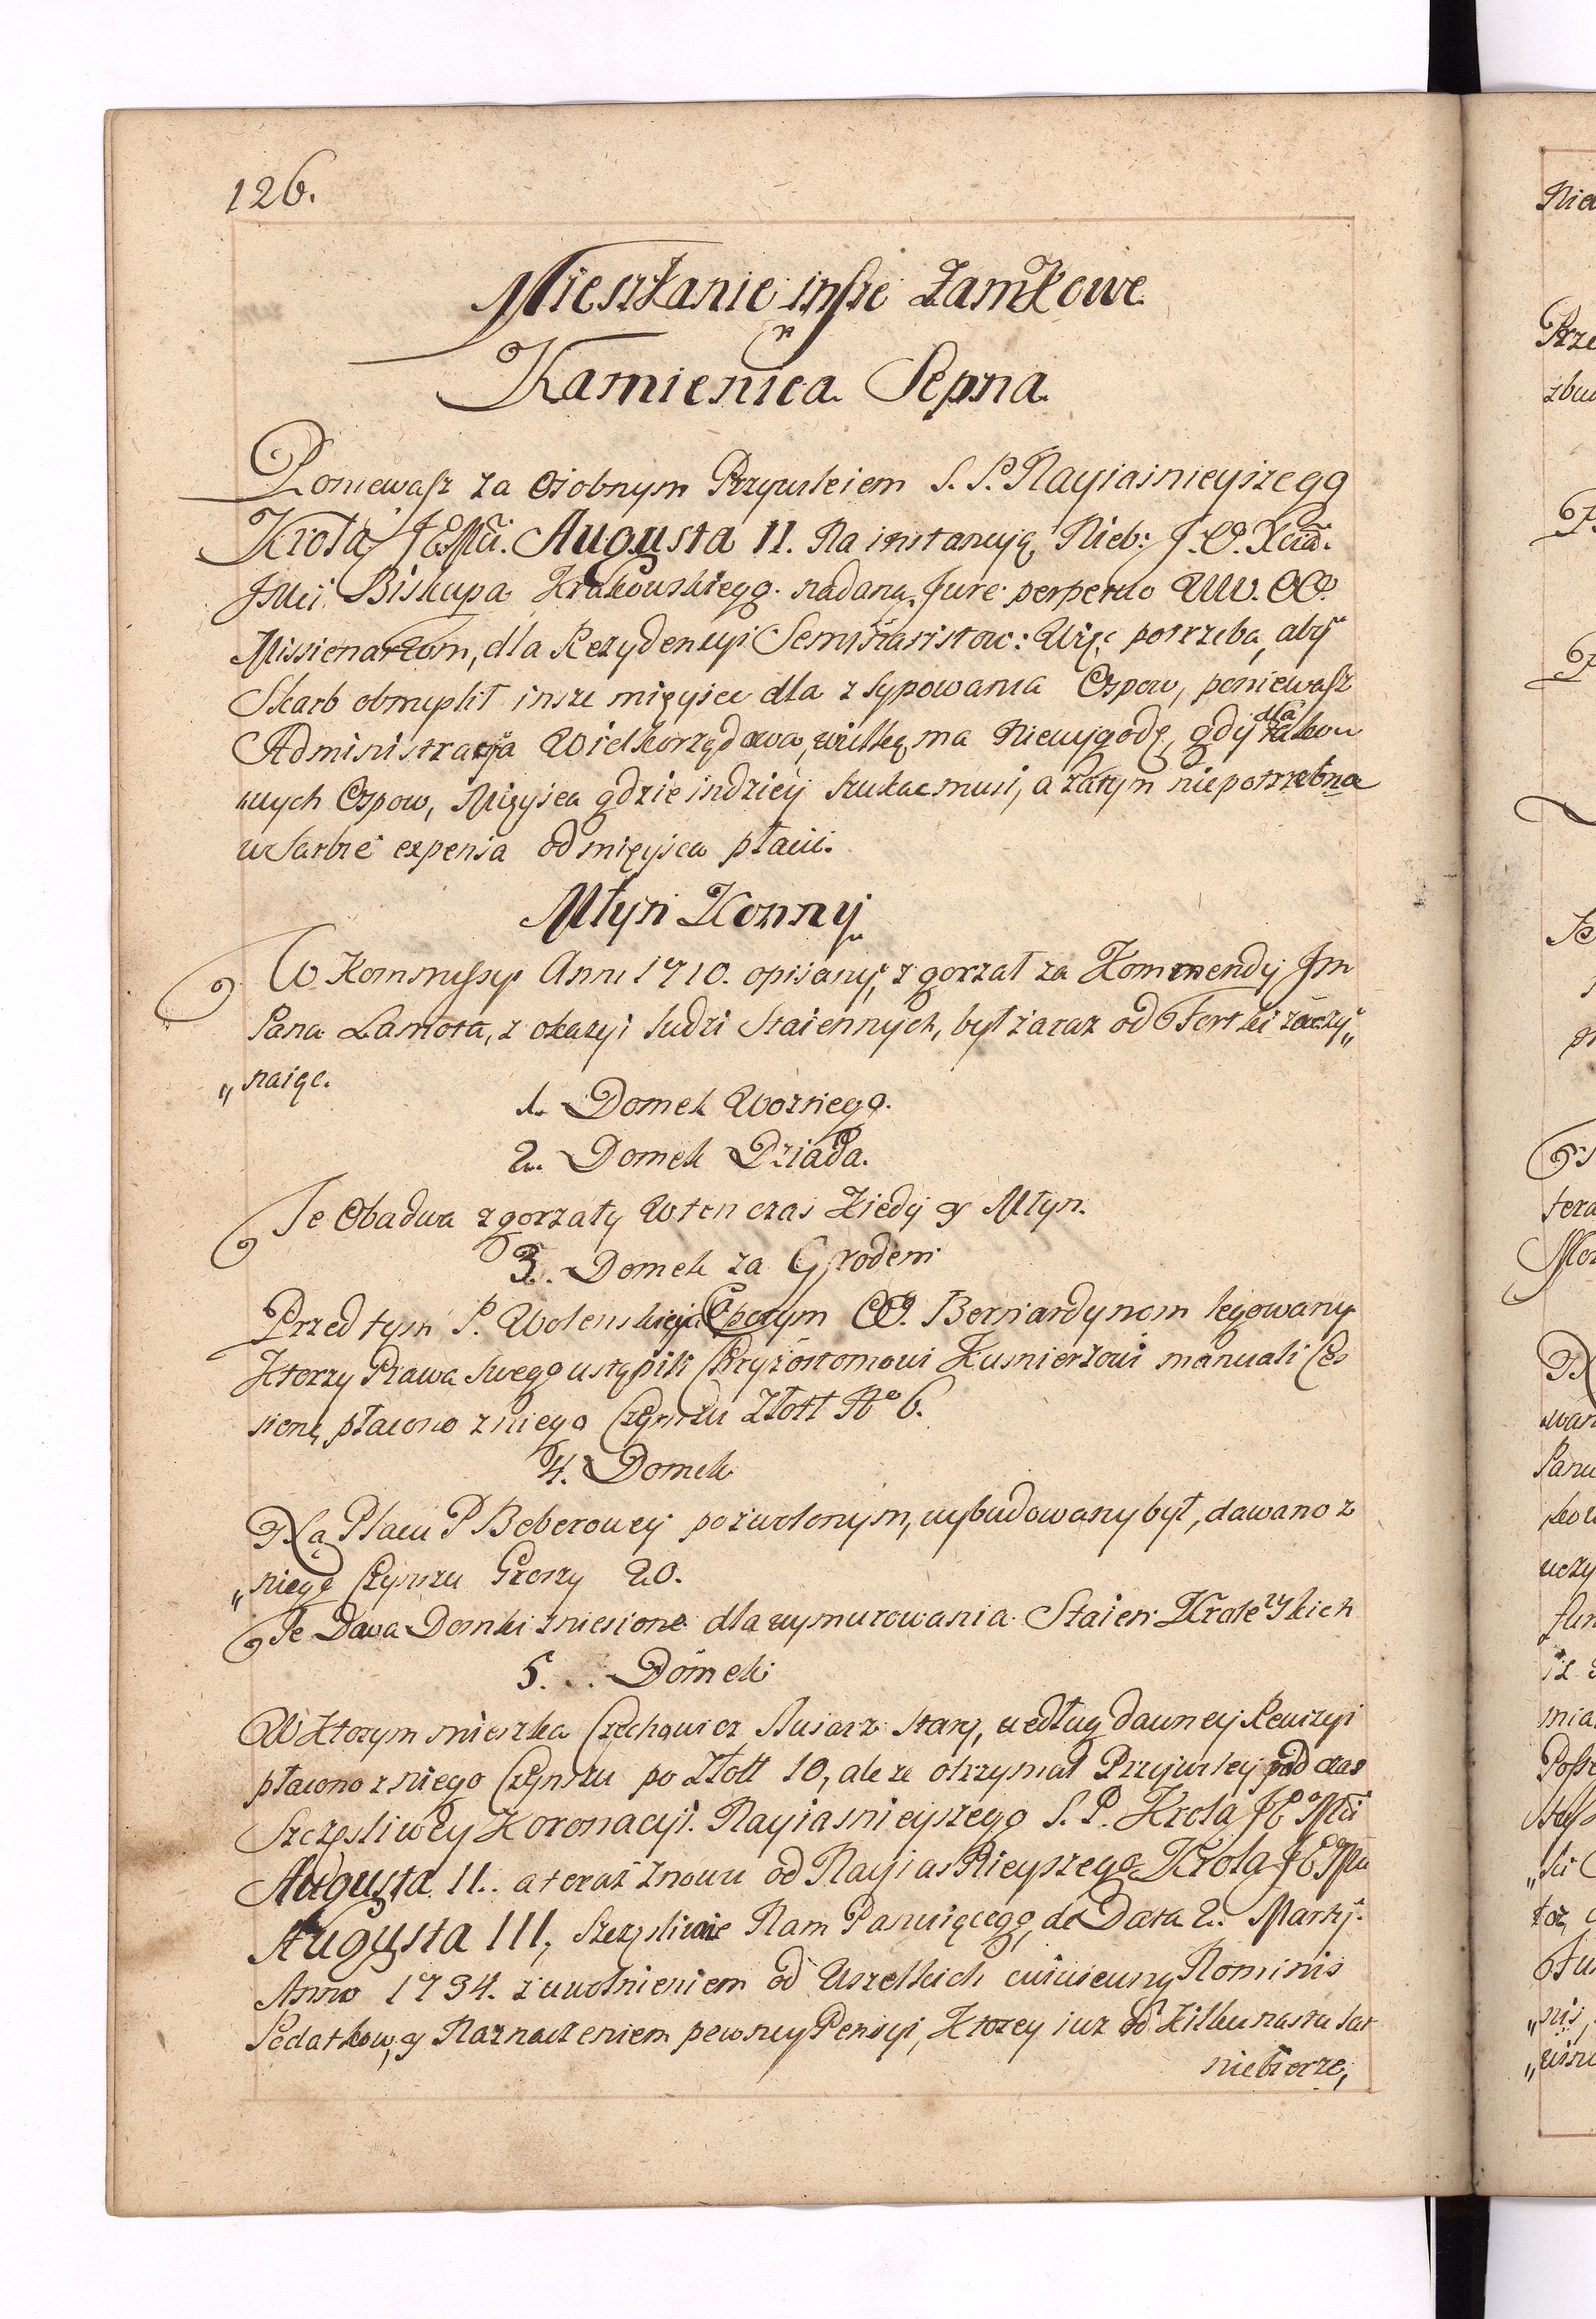 126.
Mieszkanie insze Zamkowe.
Kamienica Sepna.
Poniewasz za osobnym Przywileiem S. P. Nayiasnieyszego
Krola JEMci. Augusta II. Na instancyą Nieb: J. O. Xcia.
JMci Biskupa Krakowskiego. nadana, Jure perpetuo WW. OO.
Missionarzom, dla Rezydencyi Seminaristow: Więc potrzeba, aby
Skarb obmyslił insze mięysce dla zsypowania Ospow, poniewasz
Administracya Wielkorządowa, wielką ma Niewygodę, gdy dla takow
wych Ospow, Mięysca gdzie indziey szukac musi, a zatym niepotrzebna
w Skarbie expensa od mięysca płacic.
Młyn Konny
W Kommissyi Anni 1710. opisany, zgorzał za Kommendy Jm
Pana Lamota, z okazyi ludzi Staiennych, był zaraz od Fortki zaczy„
„naiąc.
1. Domek Woznego.
2. Domek Dziada.
Te Obadwa zgorzały w ten czas kiedy y Młyn.
3. Domek za Grodem
Przed tym P. Wolenskiego, potym OO. Bernardynom legowany
Ktorzy Prawa swego ustąpili Chryzostomowi Kusnierzowi manuali Ces
sione, płacono z niego Czynszu Złott No 6.
4. Domek
Na Placu P Beberowey pozwolonym, wybudowany był, dawano z
„niego Czynszu Groszy 20.
Te Dwa Domki zniesione dla wymurowania Staien Krolewskich
5. .. Domek
W Ktorym mieszka Czechowicz Slusarz stary, według dawney Rewizyi
płacono z niego Czynszu po Złott 10, ale ze otrzymał Przywiley pod czas
Szczęsliwey Koronacyi. Nayiasnieyszego S. P. Krola JEo Mci
Augusta II. a teraz znowu od Nayiasnieyszego Krola JEo Mci
Augusta III, Szczęsliwie Nam Panuiącego, de Data 2. Martij.
Anno 1734. z uwolnieniem od Wszelkich cuiuscunq Nominis
Podatkow, y Naznaczeniem pewney Pensyi, Ktorey iuz od Kilkunastu lat
niebierze,